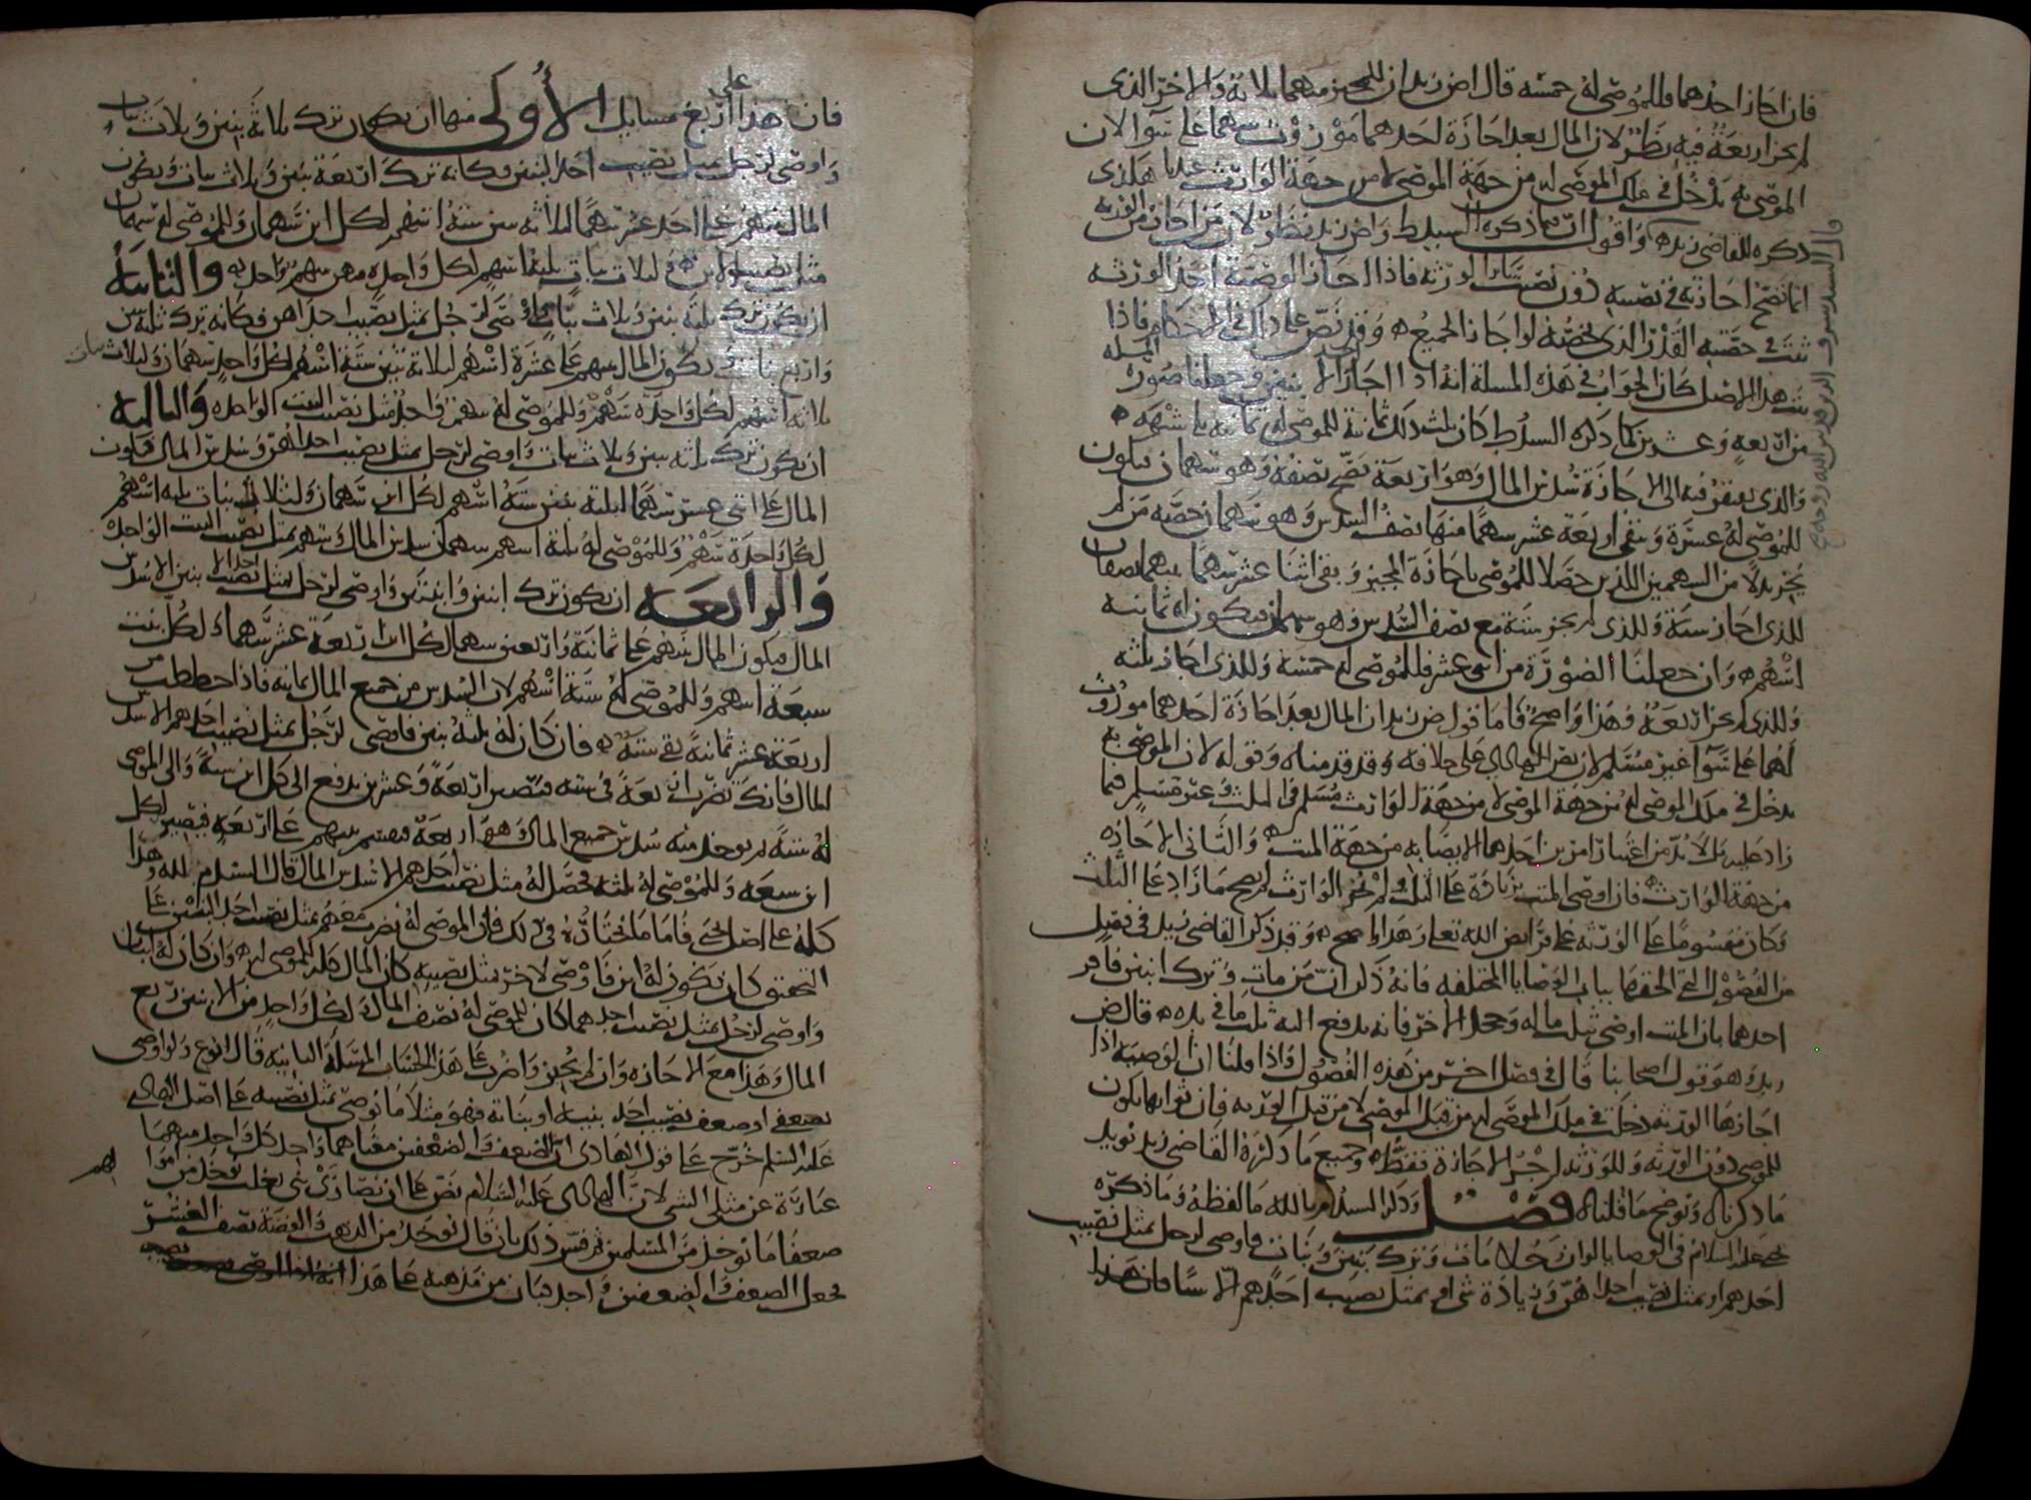 فان اجاز احدهما فللموصى له خمسه قال ض زيد ان للمجيز منهما ثلاثة وللاخر الذى
لم يجز اربعة فيه نظر لان المال بعد اجازة احدهما موروث بينهما على سواء لان
الموصى به يدخل في ملك الموصى له من جهة الموصى لا من جهة الوارث عندنا هكذى
ذكره القاضي زيد واقول ان ما ذكره السيد ط وض زيد ينظر لان من اجاز من الورثة
انما تصح اجازته في نصيبه دون نصيب سائر الورثه فاذا اجاز الوصية احد الورثه
ثبت في حصته القدر الذي يخصه لو اجاز الجميع وقد نص على ذلك في الاحكام فاذا
ثبت هذا الاصل كان الجواب في هذه المسلة انه اذا اجاز احد الابنين وجعلنا صورة المسله
من اربعه وعشرين كما ذكره السيد ط كان ثلث ذلك ثمانية للموصى له ثمانيه بلا شبهه
والذي يفتقر فيه الى الاجازة سدس المال وهو اربعة يصح نصفه وهو سهمان فيكون
للموصى له عشرة وبقى اربعة عشر سهما منها نصف السدس وهو سهمان حصة من لم
يجز بدلا من السهمين اللذين حصلا للموصى باجازة المجيز وبقي اثنا عشر سهما بينهما نصفان
للذي اجاز ستة وللذي لم يجز ستة مع نصف السدس وهو سهمان فيكون له ثمانيه
اسهم وان جعلنا الصورة من اثنى عشر فللموصى له خمسة وللذي اجاز ثلثه
وللذي لم يجز اربعة وهذا واضح فاما قول ض زيد ان المال بعد اجازة احدهما موروث
لهما على سواء غير مسلم لان نص الهادي على خلافه وقد قدمناه وقوله لان الموصى به
يدخل في ملك الموصى له من جهة الموصى لا من جهة الوارث مسلم في الثلث وغير مسلم فيما
زاد عليه بل لا بد من اعتبار امرين احدهما الايصا به من جهة الميت والثاني الاجازه
من جهة الوارث فان اوصى الميت بزيادة على الثلث ولم يجز الوارث لم يصح ما زاد على الثلث
وكان مقسوما على الورثه على فرايض الله تعالى وهذا واضح وقد ذكر القاضي زيد في فصل
من الفصول التي الحقها بباب الوصايا المختلفه فانه ذكر ان من مات وترك ابنين فاقر
احدهما بان الميت اوصى بثلث ماله وجحد الاخر فانه يدفع اليه ثلث ما في يده قال ض
زيد وهو قول اصحابنا قال في فصل اخر من هذه الفصول واذا قلنا ان الوصيه اذا
اجازها الورثه دخلت في ملك الموصى له من قبل الموصى لا من قبل الورثه فان ثوابها يكون
للموصى دون الورثه وللورثه اجر الاجازة فقط وجميع ما ذكره القاضي زيد يويد
ما ذكرناه ويوضح ما قلناه فصل وذكر السيد م بالله ما لفظه وما ذكره
يحيى عليه السلام في الوصايا لو ان رجلا مات وترك بنين وبنات واوصى لرجل بمثل نصيب
احدهم او بمثل نصيب احداهن وزيادة شي او بمثل نصيب احدهم الا شيا فان هذا
فان هذا على اربع مسايل الاولى منها ان يكون ترك ثلاثة بنين وثلاث بنات
واوصى لرجل بمثل نصيب احد البنين فكانه ترك اربعة بنين وثلاث بنات ويكون
المال بينهم على احد عشر سهما لثلاثه بنين ستة اسهم لكل ابن سهمان وللموصى له سهمان
مثل نصيب الابن ولثلاث بنات ثلثة اسهم لكل واحدة منهن سهم واحد والثانية
ان يكون ترك ثلثة بنين وثلاث بنات واوصى لرجل بمثل نصيب احداهن فكانه ترك ثلثة بنين
واربع بنات ويكون المال بينهم على عشرة اسهم لثلاثة بنين ستة اسهم لكل واحد سهمان ولثلاث بنات
ثلاثه اسهم لكل واحدة سهم وللموصى له سهم واحد مثل نصيب البنت الواحده والثالثة
ان يكون ترك ثلثه بنين وثلاث بنات واوصى لرجل بمثل نصيب احداهن وسدس المال فيكون
المال على اثنى عشر سهما لثلثة بنين ستة اسهم لكل ابن سهمان ولثلاث بنات ثلثه اسهم
لكل واحدة سهم وللموصى له ثلثة اسهم سهمان سدس المال وسهم بمثل نصيب البنت الواحدة
والرابعة ان يكون ترك ابنين وابنتين واوصى لرجل بمثل نصيب احد الابنين الا سدس
المال فيكون المال بينهم على ثمانية واربعين سهما لكل ابن اربعة عشر سهما ولكل بنت
سبعة اسهم وللموصى له ستة اسهم لان السدس من جميع المال ثمانيه فاذا حططت من
اربعة عشر ثمانية بقي ستة فان كان له ثلثة بنين فاوصى لرجل بمثل نصيب احدهم الا سدس
المال فانك تضرب اربعة في سته فتصير اربعة وعشرين يدفع الى كل ابن ستة والى الموصى
له ستة ثم يوخذ منه سدس جميع المال وهو اربعة فيقسم بينهم على اربعه فيصير لكل
ابن سبعه وللموصى له ثلثه فحصل له مثل نصيب احدهم الا سدس المال قال السيد م بالله وهذا
كله على اصل يحيى فاما ما اختاره في ذلك فان الموصى له يضرب معهم بمثل نصيب احد البنين على
التحقيق كان يكون له ابن فاوصى لاخر بمثل نصيبه كان المال كله للموصى له وان كان له ابنان
واوصى لرجل بمثل نصيب احدهما كان للموصى له نصف المال ولكل واحد من الابنين ربع
المال وهذا مع الاجازه وان لم يجيزوا ضرب على هذا الحساب المسلة الثانية قال ابو ع ولو اوصى
بضعفي او ضعف نصيب احد بنيه او بناته فهو مثل ما يوصى بمثل نصيبه على اصل الهادي
عليه السلم خرج على قول الهادي ان الضعف والضعفين معناهما واحد كل واحد منهما
عبارة عن مثلي الشي لان الهادي عليه السلام نص على ان نصارى بني تغلب يوخذ من اموالهم
ضعفا ما يوخذ من المسلمين ثم فسر ذلك بان قال يوخذ من الذهب والفضة نصف العشر
فجعل الضعف والضعفين واحد فبان من مذهبه على هذا